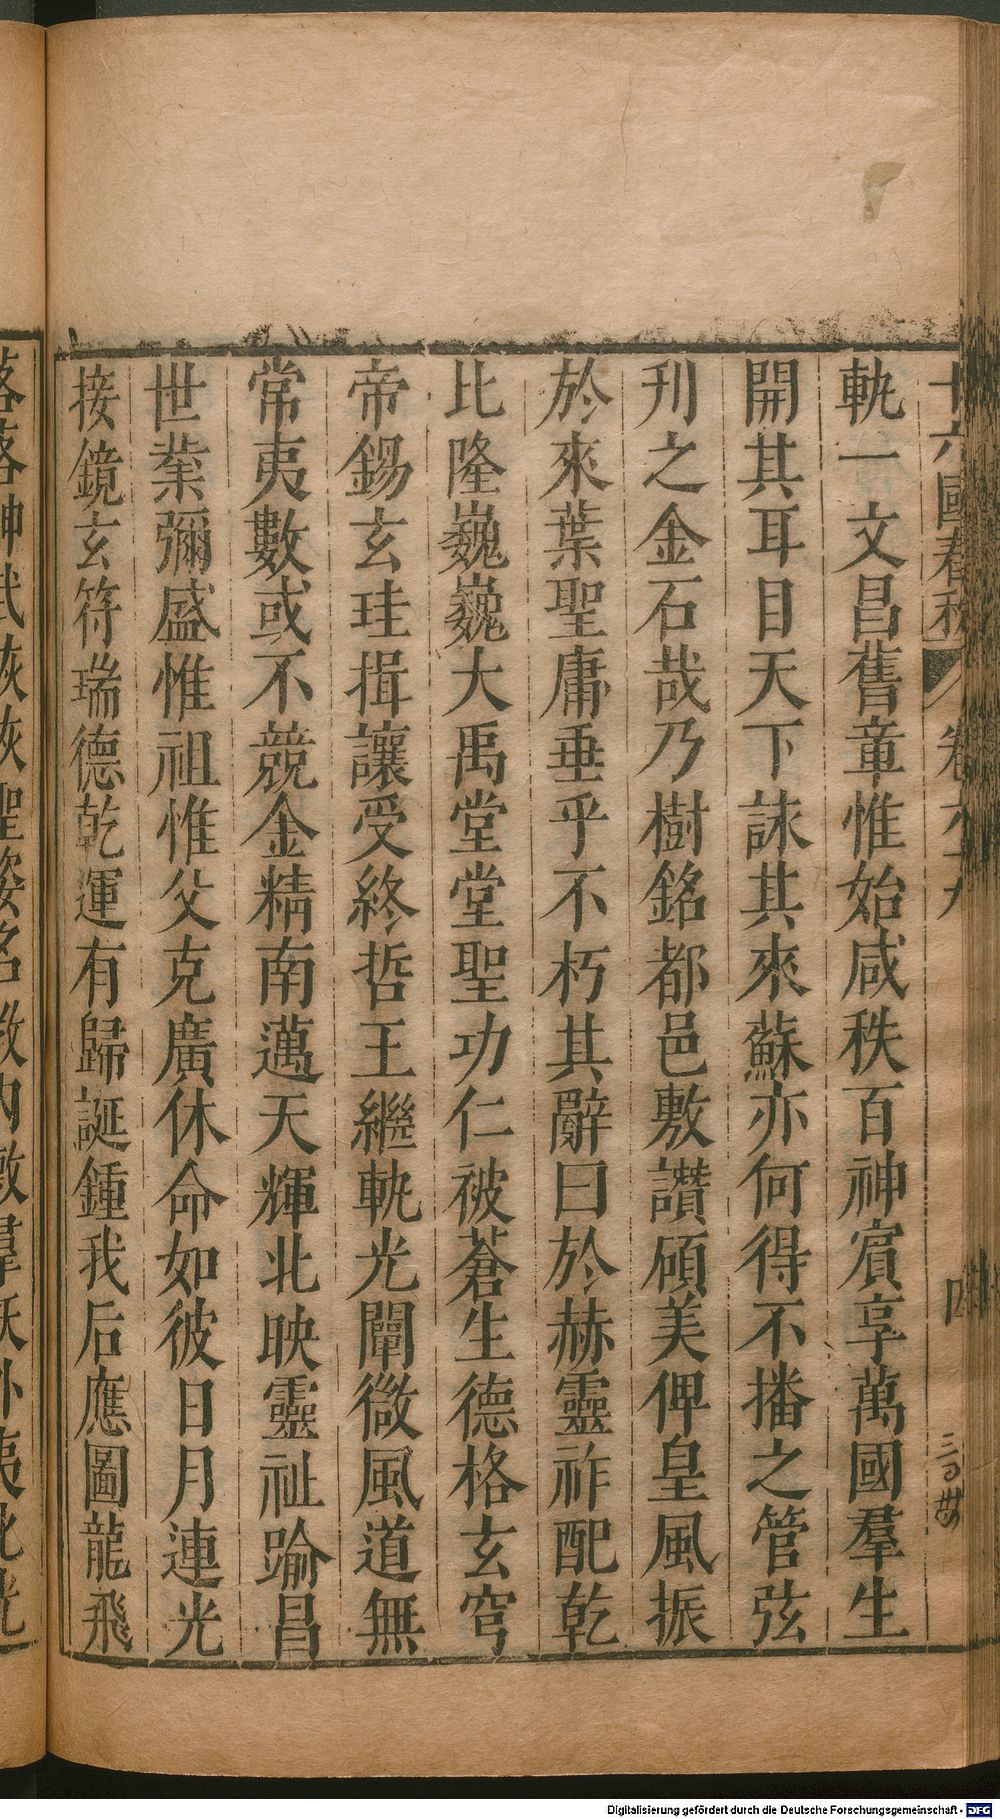 十六國春秋 卷六十九 四
軌一文昌舊章惟始咸秩百神賓享萬國羣生
開其耳目天下誄其來蘇亦何得不播之管弦
刋之金石哉乃樹銘都邑敷讚碩美俾皇風振
於來葉聖庸垂乎不朽其辭曰於赫靈祚配乾
比隆巍巍大禹堂堂聖功仁被蒼生德格玄穹
帝錫玄珪揖讓受終哲王繼軌光闡徽風道無
常夷數或不競金精南邁天輝北映靈祉踰昌
世葉彌盛惟祖惟父克廣休命如彼日月連光
接鏡玄符瑞德乾運有歸誕鍾我后應圖龍飛
落落神武恢恢聖姿名教內敷羣妖外夷化光
Digitalisierung gefördert durch die Deutsche Forschungsgemeinschaft - DFG